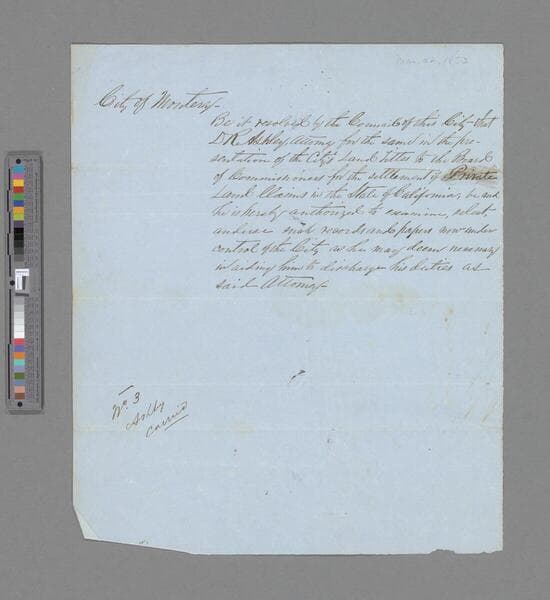 City of Monterey
Be it resolved by the Council of this City that
D R Ashley Attorney for the same in the pre-
sentation of the City's Land Titles to the Board
of Commissioners for the settlement of Private
Land Claims in the State of California, be and
he is hereby authorized to examine, select,
and use such records and papers now under
control of the City as he may deem necessary
in aiding him to discharge his duties as
said Attorney
No. 3
Ashley